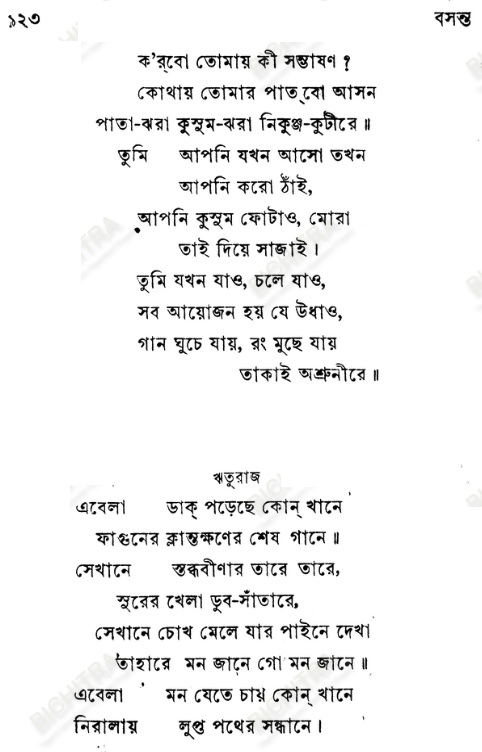 ১২৩ বসন্ত
ক'র্‌বো তোমায় কী সম্ভাষণ ?
কোথায় তোমার পাত্‌বো আসন
পাতা-ঝরা কুসুম-ঝরা নিকুঞ্জ-কুটীরে ॥
তুমি আপনি যখন আসো তখন
আপনি করো ঠাঁই,
আপনি কুসুম ফোটাও, মোরা
তাই দিয়ে সাজাই ।
তুমি যখন যাও, চলে যাও,
সব আয়োজন হয় যে উধাও,
গান ঘুচে যায়, রং মুছে যায়
তাকাই অশ্রুনীরে ॥
ঋতুরাজ
এবেলা ডাক্ পড়েছে কোন্ খানে
ফাগুনের ক্লান্তক্ষণের শেষ গানে ॥
সেখানে স্তব্ধবীণার তারে তারে,
সুরের খেলা ডুব-সাঁতারে,
সেখানে চোখ মেলে যার পাইনে দেখা
তাহারে মন জানে গো মন জানে ॥
এবেলা মন যেতে চায় কোন্ খানে
নিরালায় লুপ্ত পথের সন্ধানে ।
BICHITRA
BICHITRA
BICHITRA
BICHITRA